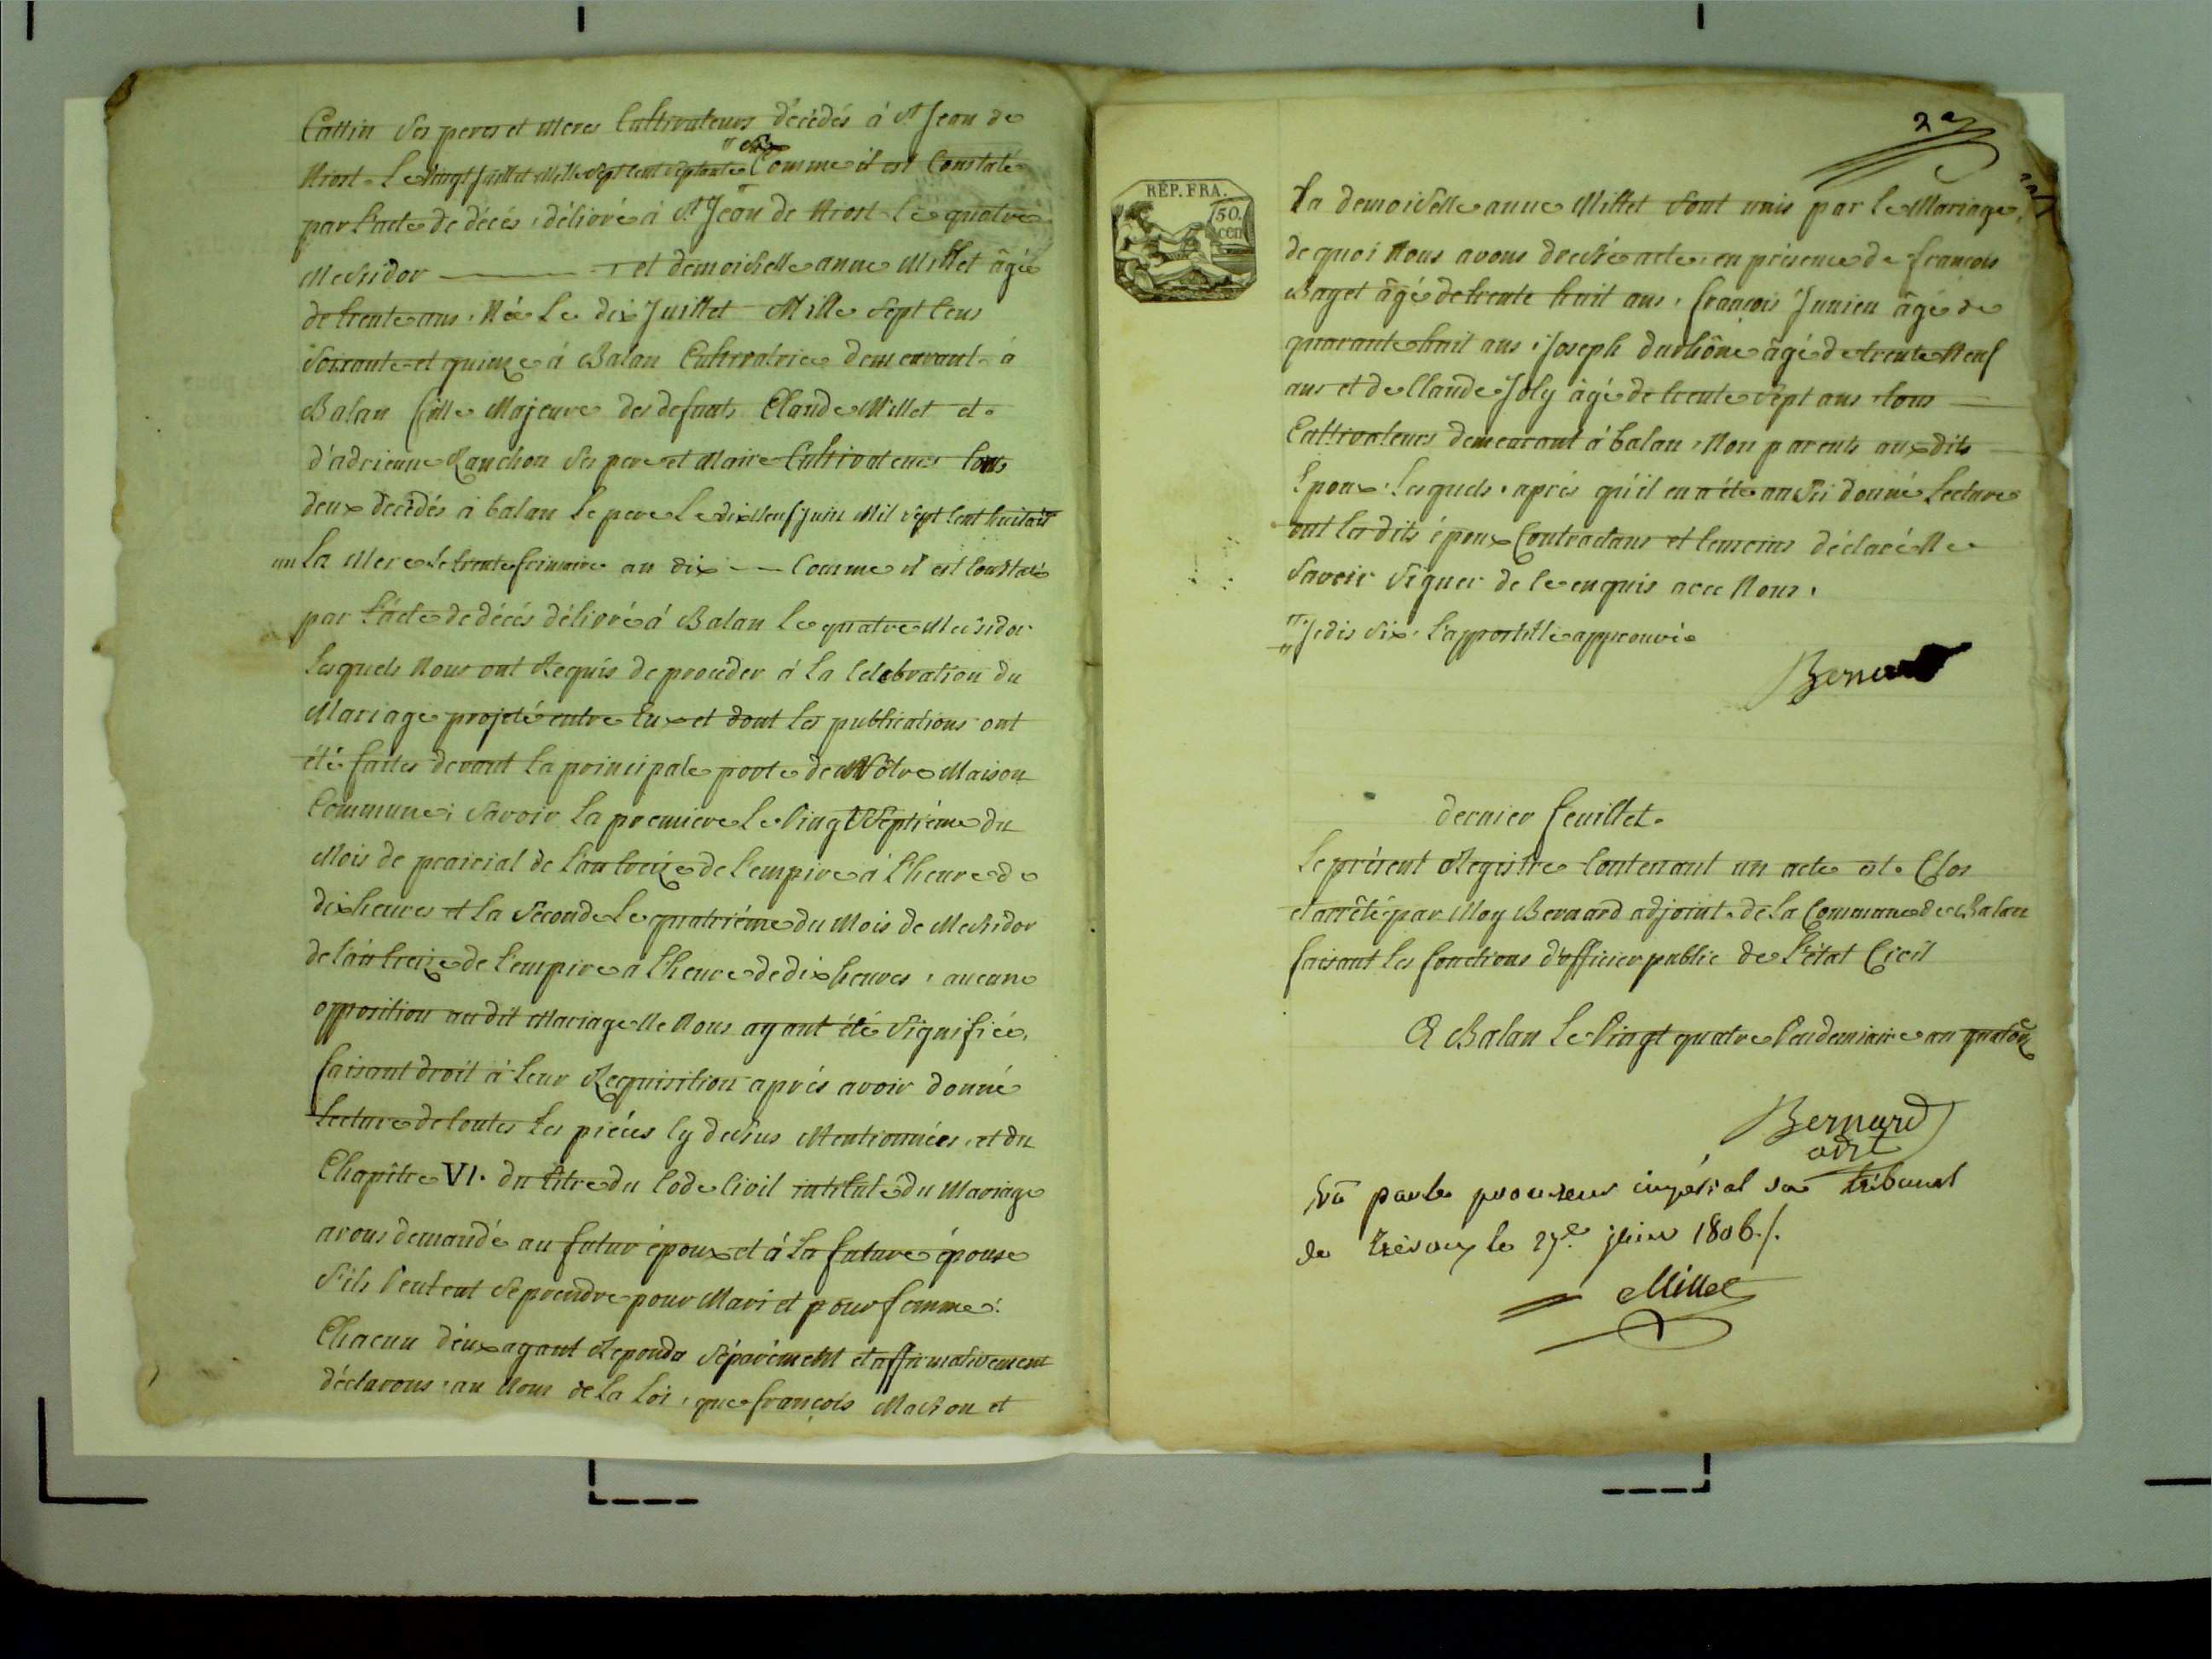 Cattin Ses peres et Meres Cultivateurs décédés à St Jean de
Niort Le vingt Juillet Mille Sept Cent Septante " Six Comme il est Constaté
par l'acte de décés, délivré à St Jean de Niort le quatre
Messidor et demoiselle anne Millet âgée
de trente ans, Née Le dix Juillet Mille Sept Cens
Soixante et quinze à Balan Cultivatrice demeurant à
Balan fille Majeure des defunts Claude Millet et
d'adrienne Ranchon Ses pere et Maire Cultivateurs tous
deux decédés à balan Le pere Le dix Neuf Juin Mil Sept Cent huitante
un La Mere Le trente frimaire an dix Comme il est Constaté
par l'acte de décés délivré à Balan Le quatre Messidor
Lesquels Nous ont Requis de procéder à la Celebration du
Mariage projeté entre Eux et dont les publications ont
été faites devant la principale porte de Nôtre Maison
Commune; Savoir La premiere Le Vingt Septième du
Mois de prairial de l'an treize de l'empire à l'heure de
dix heures et la Seconde Le quatriéme du Mois de Messidor
de l'an treize de l'empire a l'heure de dix heures, aucune
opposition au dit Mariage Ne Nous ayant été Signifiée,
faisant droit à leur Requisition aprés avoir donné
Lecture de toutes Les piéces Cy dessus Mentionnées, et du
Chapître VI. du titre du Code Civil intitulé du Mariage
avons demandé au futur époux et à la future épouse
S'ils Veulent Se prendre pour Mari et pour femme:
Chacun d'eux ayant Repondu Séparément et affirmativement
déclarons, au Nom de la Loi, que françois Masson et
2e
RÉP. FRA.
50. cen
La demoiselle anne Millet Sont unis par le Mariage,
de quoi Nous avons dressé acte, en présence de françois
Baget âgé de trente huit ans, françois Junien âgé de
quarante huit ans, Joseph durhône âgé de trente Neuf
ans et de Claude Joly âgé de trente Sept ans tous
Cultivateurs demeurant à balan, Non parents aux dits
Epoux, Lesquels, aprés qu'il en a été aussi donné Lecture
ont les dits époux Contractans et temoins déclaré Ne
Savoir Signer de ce enquis avec Nous.
" Je dis Six, L'appostille approuvée
Bernard
dernier feuillet.
Le présent Registre Contenant un acte est Clos
et arrêté par Moy Bernard adjoint de la Commune de Balan
faisant les fonctions d'officier public de l'état Civil
A Balan Le Vingt quatre Vendemiaire an quatorze
Bernard
adjt
Vû par le procureur impérial du tribunal
de Trévoux le 27e juin 1806./.
Millet